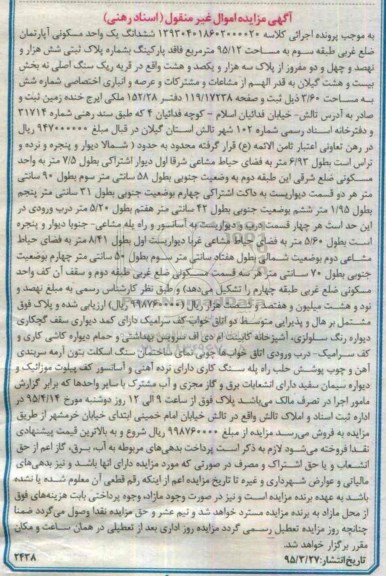 آگهی مزایده اموال غیر منقول (اسناد رهنی)
به موجب پرونده اجرائی کلاسه ۱۲۹۳۰۴۰۱۸۶۰۲۰۰۰۰۲۰ ششدانگ یک واحد مسکونی آپارتمان
ضلع غربی طبقه سوم به مساحت ۹۵/۱۲ مترمربع فاقد پارکینگ بشماره پلاک ثبتی شش هزار و
نهصد و چهل و دو مفروز از پلاک سه هزار و یکصد و هشت واقع در قریه ریک سنگ اصلی نه بخش
بیست و هشت گیلان به قدر السهم از مشاعات و مشترکات و عرصه و انباری اختصاصی شماره شش
به مساحت ۳/۶۰ ذیل ثبت و صفحه ۱۱۹/۱۷۲۳۸ دفتر ۱۵۲/۲۸ ملکی ایرج خنده زمین ثبت و
صادر به آدرس تالش- خیابان فدائیان اسلام - کوچه فدائیان ۴ که طبق سند رهنی شماره ۳۱۷۱۴
و دفترخانه اسناد رسمی شماره ۱۰۲ شهر تالش استان گیلان در قبال مبلغ ۹۴۷۰۰۰۰۰۰ ریال
در رهن تعاونی اعتبار ثامن الائمه (ع) قرار گرفته محدود به حدود: شمالا دیوار و پنجره و نرده و
تراس است بطول ۶/۹۳ متر به فضای حیاط مشاعی شرقا اول دیوار اشتراکی بطول ۷/۵ متر به واحد
مسکونی ضلع شرقی این طبقه دوم به وضعیت جنوبی بطول ۵۸ سانتی متر سوم بطول ۹۰ سانتی
متر هر دو قسمت دیواریست به داکت اشتراکی چهارم بوضعیت جنوبی بطول ۳۱ سانتی متر پنجم
بطول ۱/۹۵ متر ششم بوضعیت جنوبی بطول ۴۲ سانتی متر هفتم بطول ۵/۲۰ متر درب ورودی در
این حد است هر چهار قسمت درب و دیواریست به آسانسور و راه پله مشاعی- جنوبا دیوار و پنجره
است بطول ۵/۶۰ متر به فضای حیاط مشاعی غربا دیواریست اول بطول ۸/۴۱ متر به فضای حیاط
مشاعی دوم بوضعیت شمالی بطول هفتاد سانتی متر سوم بطول ۵۰ سانتی متر چهارم بوضعیت
جنوبی بطول ۷۰ سانتی متر هر سه قسمت مسکونی ضلع غربی طبقه دوم و سقف آن کف واحد
مسکونی ضلع غربی طبقه چهارم را تشکیل می‌دهد) و طبق نظر کارشناس رسمی به مبلغ نهصد و
نود و هشت میلیون و هفتصد و شصت هزار ریال (۹۹۸۷۶۰۰۰۰ ریال) ارزیابی شده و پلاک فوق
مشتمل بر هال و پذیرایی متوسط دو اتاق خواب کف سرامیک دارای کمد دیواری سقف گچکاری
دیواره رنگ سلولزی، آشپزخانه کابینت ام دی اف سرویس بهداشتی و حمام دیواره کاشی کاری و
کف سرامیک- درب ورودی اتاق خواب‌ها چوبی نمای ساختمان سنگ اسکلت بتون آرمه سربندی
آهن و چوب پوشش حلب راه پله سنگ کاری دارای نرده آهنی و آسانسور کف پیلوت موزائیک و
دیواره سیمان سفید دارای انشعابات برق و گاز مجزی و آب مشترک با سایر واحدها که برابر گزارش
مامور اجرا در تصرف مالک می‌باشد پلاک فوق از ساعت ۹ الی ۱۲ روز دوشنبه مورخ ۹۵/۴/۱۴ در
اداره ثبت اسناد و املاک تالش واقع در تالش خیابان امام خمینی ابتدای خیابان خرمشهر از طریق
مزایده به فروش می‌رسد مزایده از مبلغ ۹۹۸۷۶۰۰۰۰ ریال شروع و به بالاترین قیمت پیشنهادی
نقدا فروخته می‌شود لازم به ذکر است پرداخت بدهی‌های مربوطه به آب، برق، گاز اعم از حق
انشعاب و یا حق اشتراک و مصرف در صورتی که مورد مزایده دارای آنها باشد و نیز بدهی‌های
مالیاتی و عوارض شهرداری و غیره تا تاریخ مزایده اعم از اینکه رقم قطعی آن معلوم شده یا نشده
باشد به عهده برنده مزایده است و نیز در صورت وجود مازاد، وجوه پرداختی بابت هزینه‌های فوق
از محل مازاد به برنده مزایده مسترد خواهد شد و نیم عشر و حق مزایده نقدا وصول می‌گردد ضمنا
چنانچه روز مزایده تعطیل رسمی گردد مزایده روز اداری بعد از تعطیلی در همان ساعت و مکان
مقرر برگزار خواهد شد.
تاریخ انتشار: ۹۵/۳/۲۷
۲۴۳۸